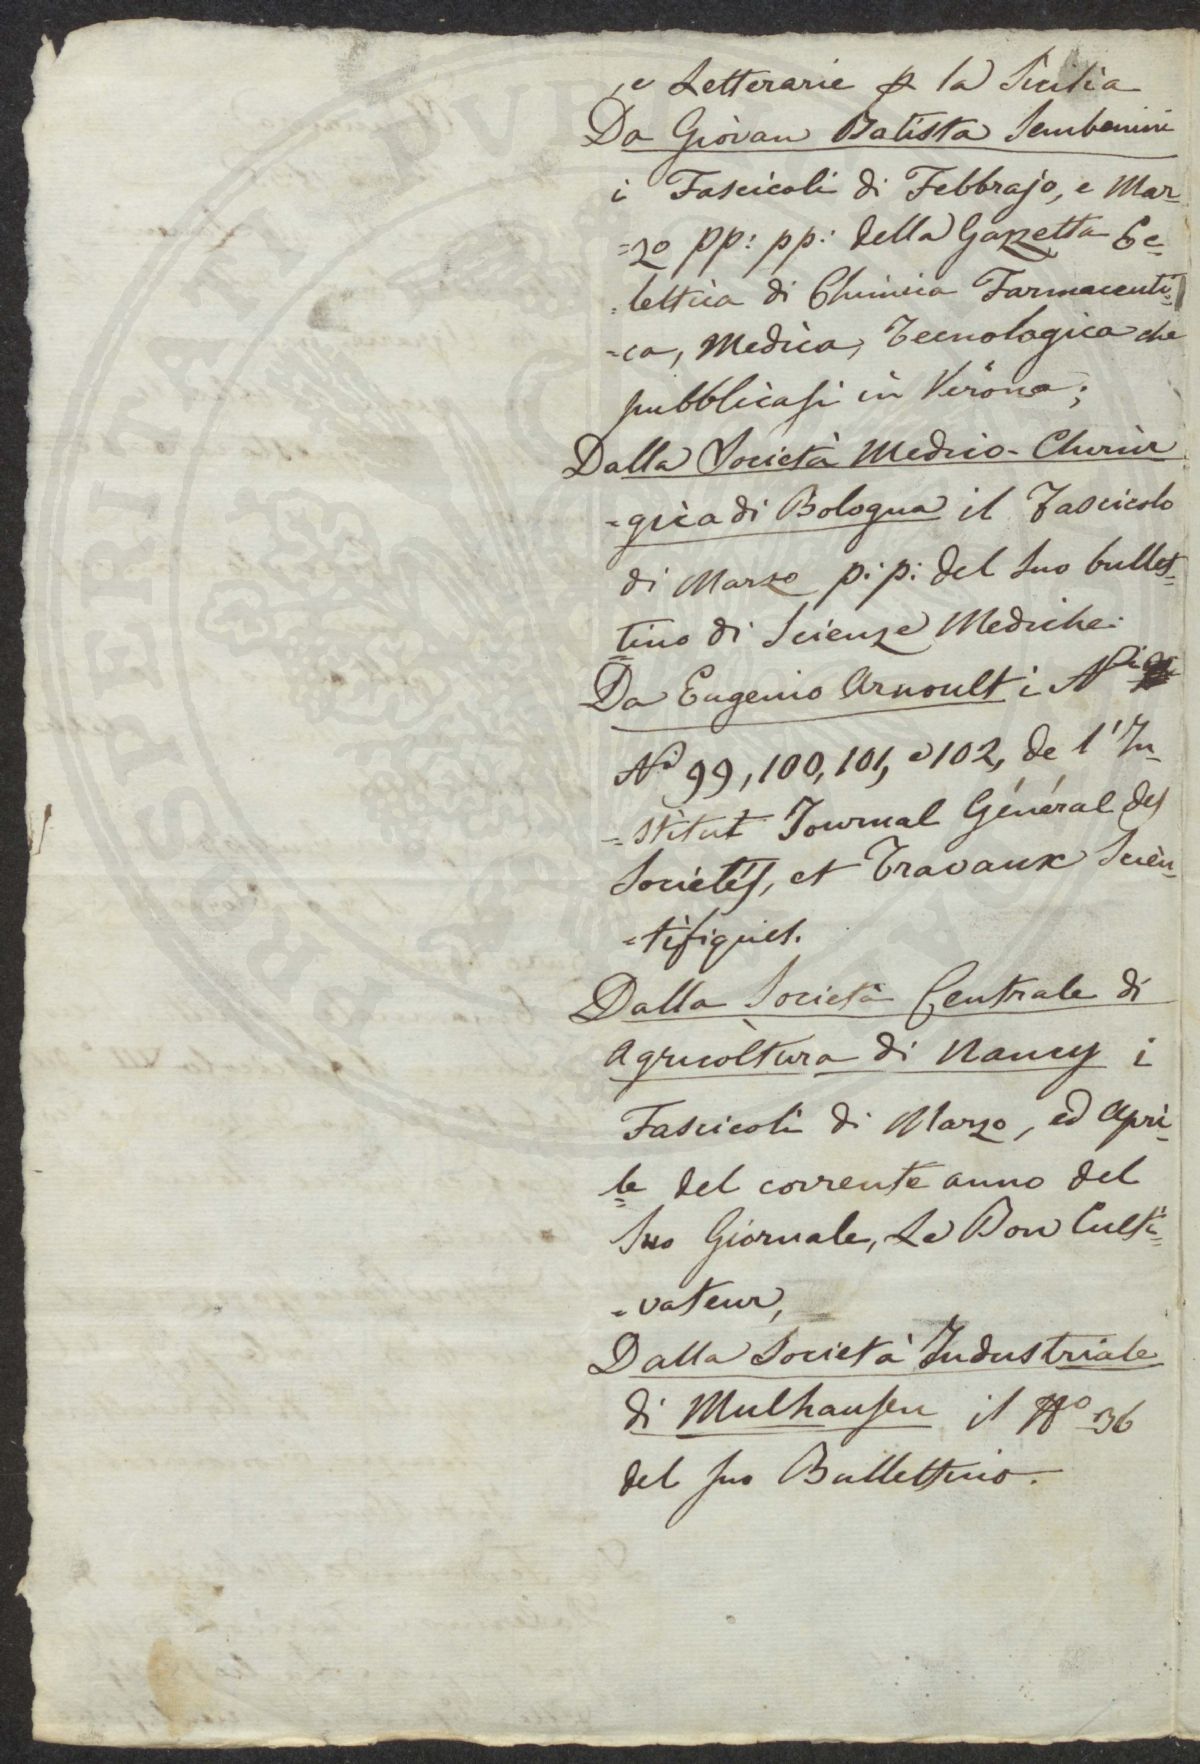 e Letterarie p la Sicilia
Da Giovan Batista Sembenini
i Fascicoli di Febbrajo, e Mar-
=zo pp: pp: della Gazzetta Ec-
=lettica di Chimica Farmaceuti=
=ca, Medica, Tecnologica che
pubblicasi in Verona;
Dalla Società Medico-Chirur
=gica di Bologna il Fascicolo
di Marzo p: p: del suo bullet=
tino di Scienze Mediche:
Da Eugenio Arnoult i
Ni 99, 100, 101, e 102, de l'In-
=stitut Journal Général des
Societés, et Travaux Scien-
=tifiques.
Dalla Società Centrale di
Agricoltura di Nancy i
Fascicoli di Marzo, ed Apri=
le del corrente anno del
suo Giornale, Le Bon Culti=
=vateur,
Dalla Società Industriale
di Mulhausen il No 36
del suo Bullettino.